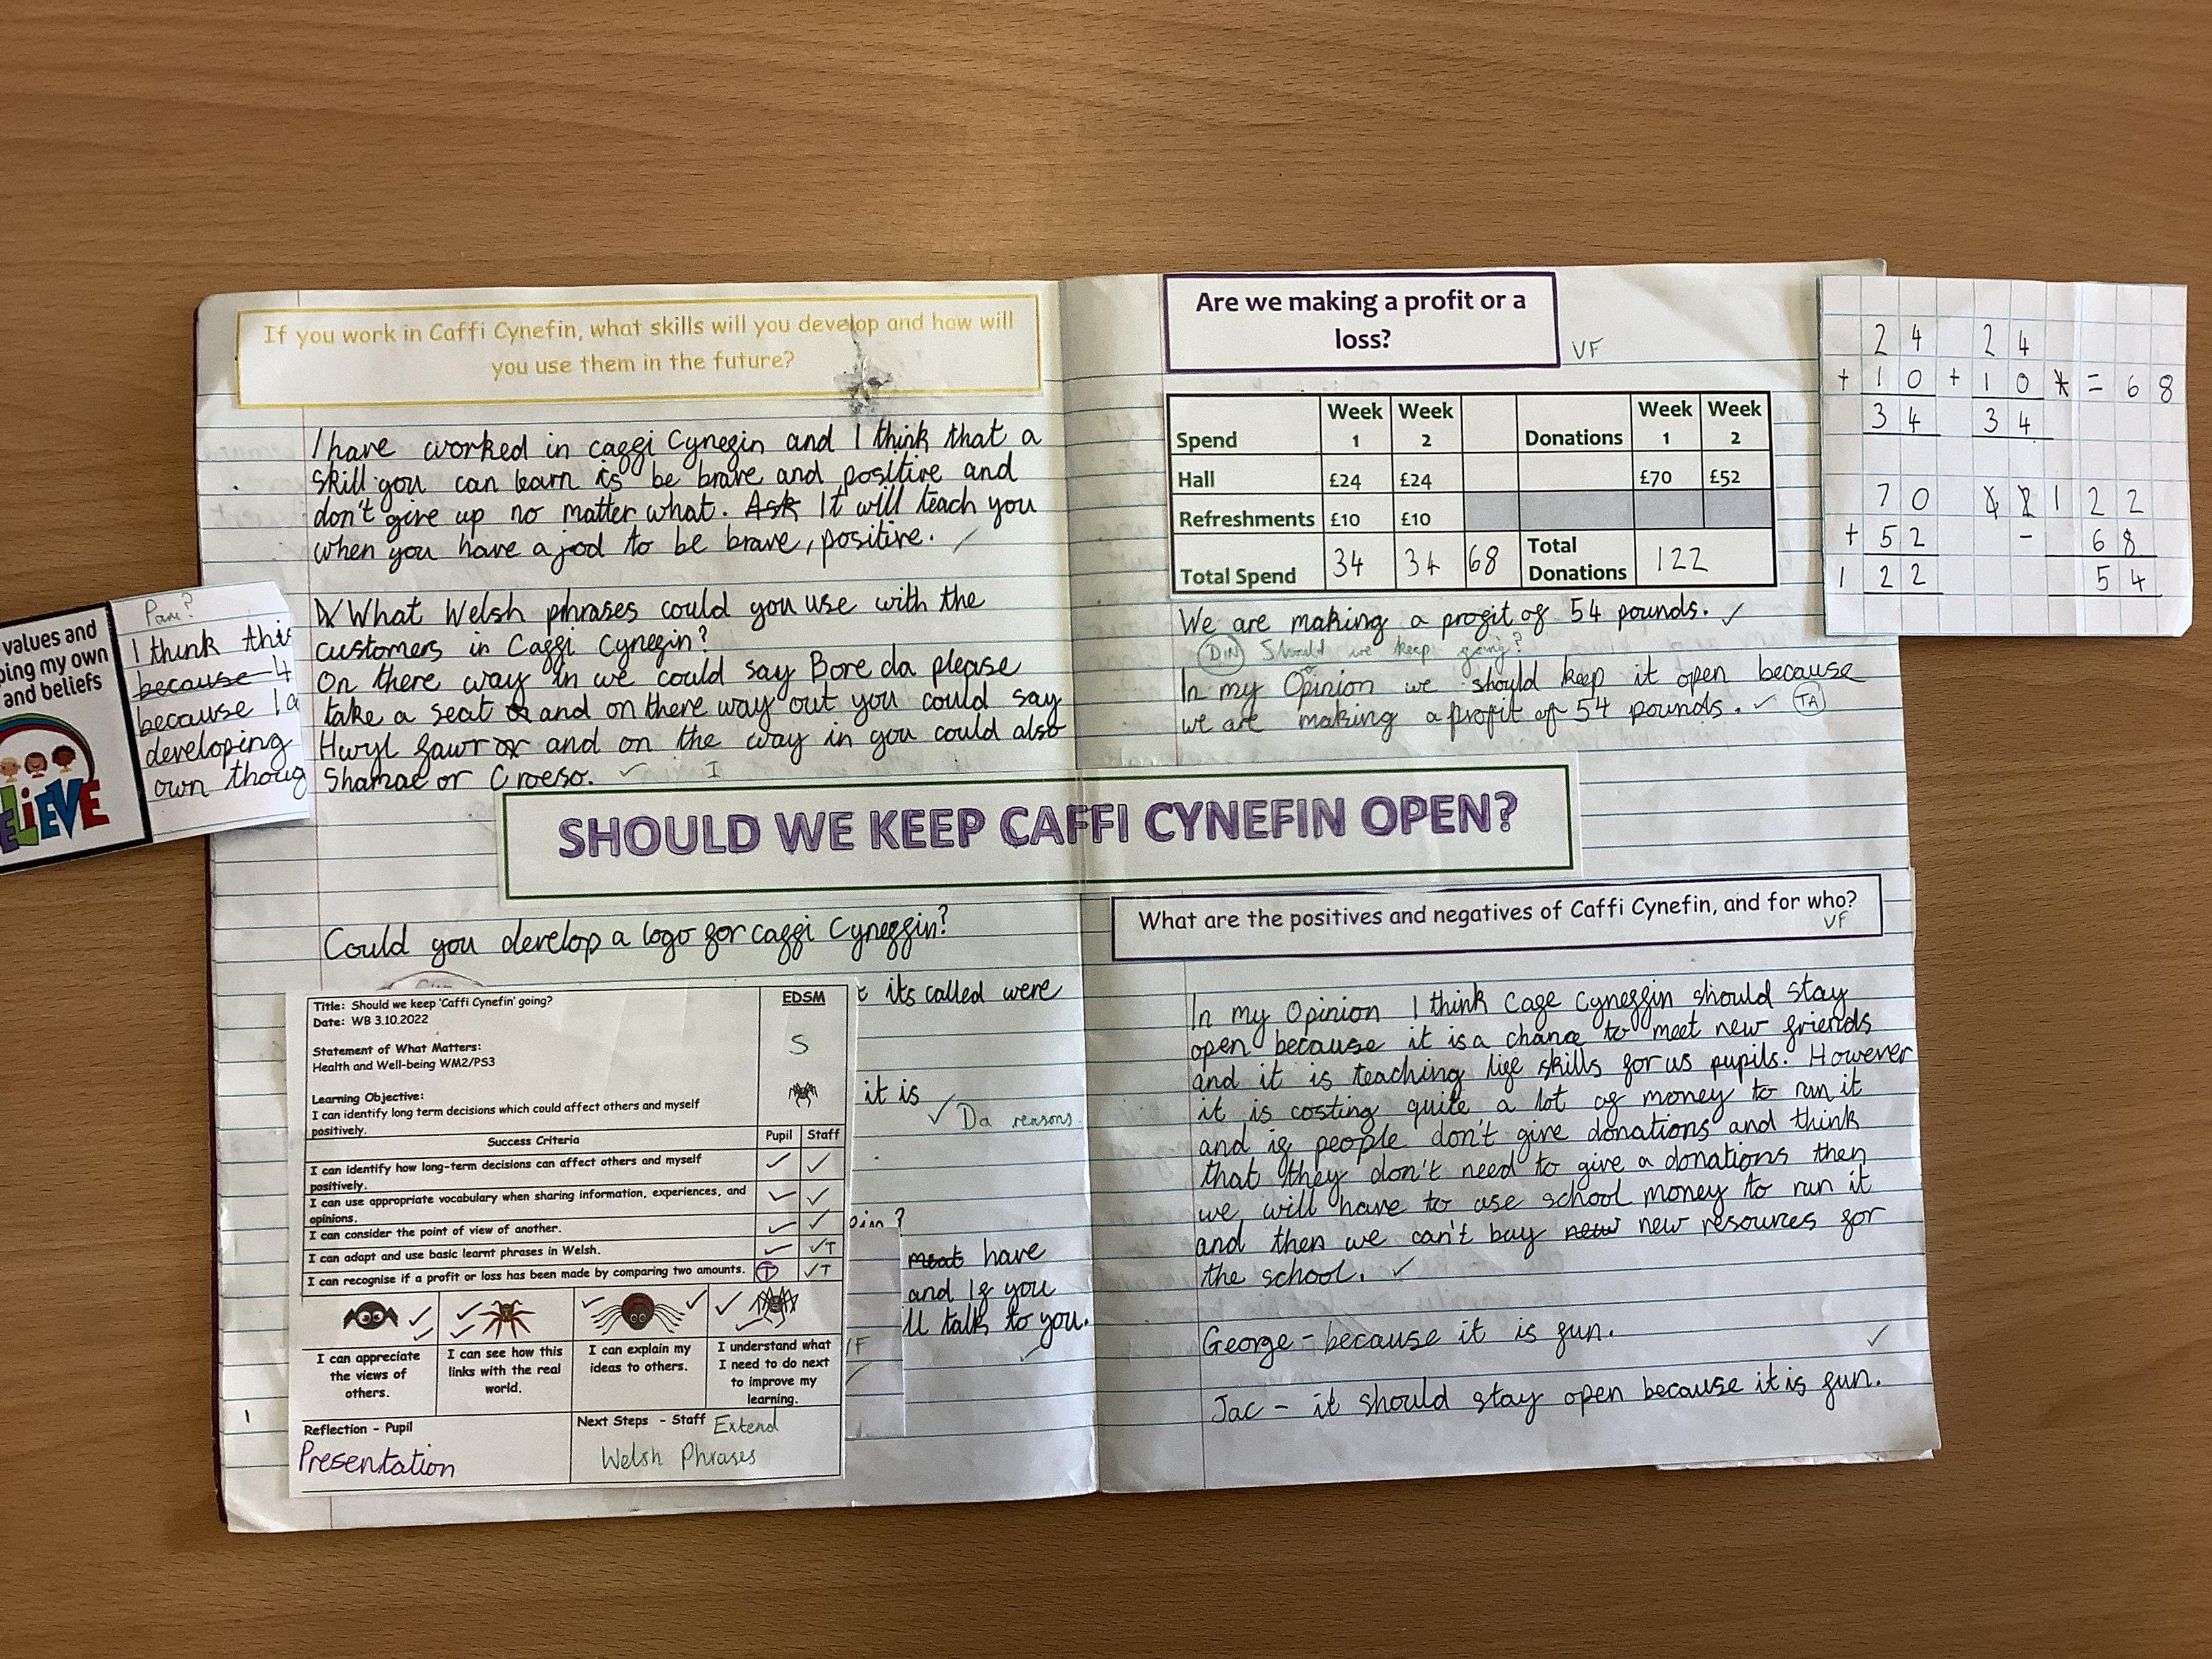 If you work in Caffi Cynefin, what skills will you develop and how will
you use them in the future?
I have worked in caggi Cynegin and I think that a
skill you can learn is be brave and positive and
don't give up no matter what. Ask It will teach you
when you have a jod to be brave, positive.
What Welsh phrases could you use with the
customers in Caggi Cynegin?
On there way in we could say Bore da please
take a seat and on there way out you could say
Hwyl gawr or and on the way in you could also
Shamae or Croeso.
I
values and
ping my own
and beliefs
ELiEVE
Pam?
I think this
because 4
because I a
developing
own thoug
SHOULD WE KEEP CAFFI CYNEFIN OPEN?
Could you develop a logo gor caggi Cyneggin?
t its called were
it is
Da reasons.
oin?
meat have
and Ig you
ll talk to you.
Title: Should we keep 'Caffi Cynefin' going?
Date: WB 3.10.2022
Statement of What Matters:
Health and Well-being WM2/PS3
Learning Objective:
I can identify long term decisions which could affect others and myself
positively.
EDSM
S
Success Criteria Pupil Staff
I can identify how long-term decisions can affect others and myself
positively.
I can use appropriate vocabulary when sharing information, experiences, and
opinions.
I can consider the point of view of another.
I can adapt and use basic learnt phrases in Welsh. T
I can recognise if a profit or loss has been made by comparing two amounts. T T
I can appreciate
the views of
others.
I can see how this
links with the real
world.
I can explain my
ideas to others.
I understand what
I need to do next
to improve my
learning.
Reflection - Pupil
Presentation
Next Steps - Staff Extend
Welsh Phrases
Are we making a profit or a
loss?
VF
Spend Week 1 Week 2 Donations Week 1 Week 2
Hall £24 £24 £70 £52
Refreshments £10 £10
Total Spend 34 34 68 Total Donations 122
We are making a progit og 54 pounds.
DIN Should we keep going?
In my Opinion we should keep it open because
we are making a profit of 54 pounds. TA
24 24
+ 10 + 10 = 68
34 34
70 122
+ 52 - 68
122 54
What are the positives and negatives of Caffi Cynefin, and for who?
VF
In my Opinion I think Cage Cyneggin should stay
open because it is a chance to meet new griends
and it is teaching lige skills gor us pupils. However
it is costing quite a lot og money to run it
and ig people don't give donations and think
that they don't need to give a donations then
we will have to use school money to run it
and then we can't buy new new resources gor
the school.
George - because it is gun.
Jac - it should stay open because it is gun.